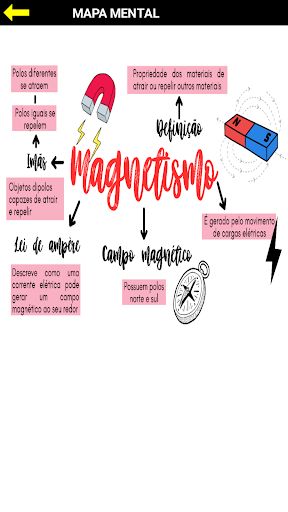 MAPA MENTAL
Polos diferentes
se atraem
Polos iguais se
repelem
Imãs
Objetos dipolos
capazes de atrair
e repelir
Propriedade dos materiais de
atrair ou repelir outros materiais
Definição
N S
Magnetismo
É gerado pelo movimento
de cargas elétricas
Lei de ampère
Descreve como uma
corrente elétrica pode
gerar um campo
magnético ao seu redor
Campo magnético
Possuem polos
norte e sul